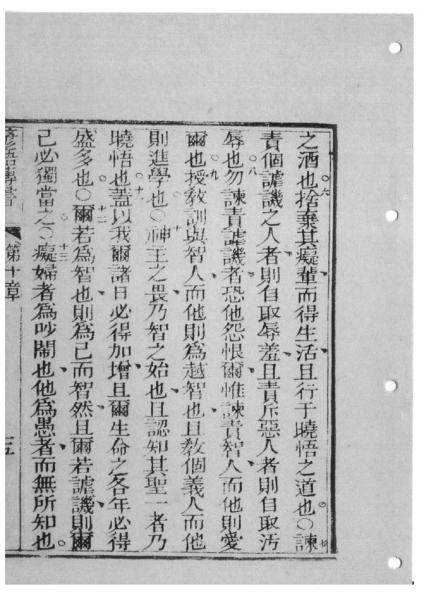 之酒也捨棄其癡輩而得生活且行于曉悟之道也○諫
責個謔譏之人者則自取辱羞且責斥惡人者則自取汚
辱也勿諫責謔譏者恐他怨恨爾惟諫責智人而他則愛
爾也授敎訓與智人而他則為越智也且敎個義人而他
則進學也○神主之畏乃智之始也且認知其聖一者乃
曉悟也蓋以我爾諸日必得加增且爾生命之各年必得
盛多也○爾若為智也則為己而智然且爾若謔譏則爾
己必獨當之○癡婦者為吵鬧也他為愚者而無所知也
第十章